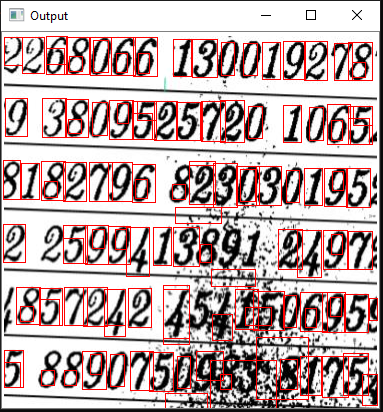 Output
2268066 130019278
9 3809525720 1065
8182796 823030195
2 2599413891 2497
4857242 454150695
5 8890750953 8175